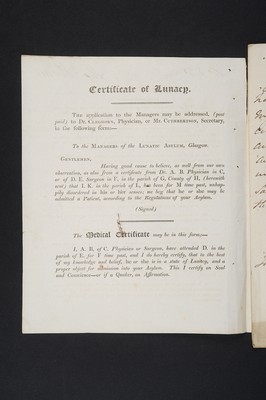 Certificate of Lunacy.
The application to the Managers may be addressed, (post
paid) to Dr. CLEGHORN, Physician, or Mr. CUTHBERTSON, Secretary,
in the following form:—
To the MANAGERS of the LUNATIC ASYLUM, Glasgow.
GENTLEMEN,
Having good cause to believe, as well from our own
observation, as also from a certificate from Dr. A. B. Physician in C,
or of D. E. Surgeon in F, in the parish of G, County of H, (herewith
sent) that I. K. in the parish of L, has been for M time past, unhap-
pily disordered in his or her senses; we beg that he or she may be
admitted a Patient, according to the Regulations of your Asylum.
(Signed)
The Medical Certificate may be in this form:—
I, A. B. of C. Physician or Surgeon, have attended D. in the
parish of E, for F time past, and I do hereby certify, that to the best
of my knowledge and belief, he or she is in a state of Lunacy, and a
proper object for admission into your Asylum. This I certify on Soul
and Conscience—or if a Quaker, on Affirmation.